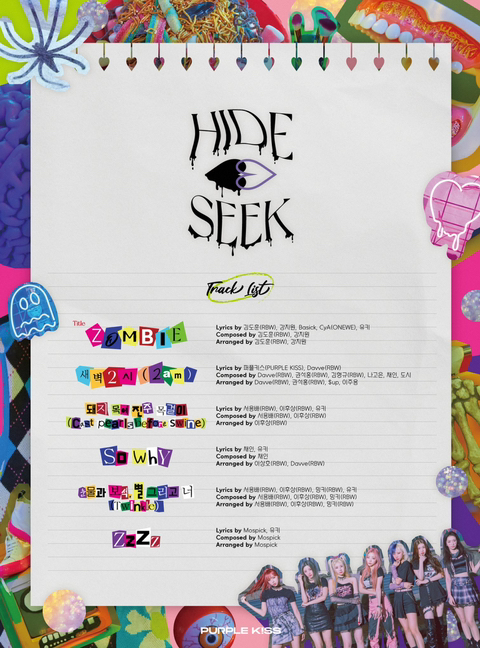 HIDE
SEEK
Track List
Title
ZOMBIE
Lyrics by 김도훈(RBW), 강지원, Basick, CyA(ONEWE), 유키
Composed by 김도훈(RBW), 강지원
Arranged by 김도훈(RBW), 강지원
새벽 2시 (2am)
Lyrics by 퍼플키스(PURPLE KISS), Davvel(RBW)
Composed by Davvel(RBW), 권석홍(RBW), 김형규(RBW), 나고은, 채인, 도시
Arranged by Davvel(RBW), 권석홍(RBW), $up, 이주용
돼지 목에 진주 목걸이
(Cast pearls before swine)
Lyrics by 서용배(RBW), 이후상(RBW), 유키
Composed by 서용배(RBW), 이후상(RBW)
Arranged by 이후상(RBW)
So WhY
Lyrics by 채인, 유키
Composed by 채인
Arranged by 이상호(RBW), Davvel(RBW)
눈물과 보석, 별 그리고 너
(Twinkle)
Lyrics by 서용배(RBW), 이후상(RBW), 밍키(RBW), 유키
Composed by 서용배(RBW), 이후상(RBW), 밍키(RBW)
Arranged by 서용배(RBW), 이후상(RBW), 밍키(RBW)
ZzZz
Lyrics by Mospick, 유키
Composed by Mospick
Arranged by Mospick
PURPLE KISS